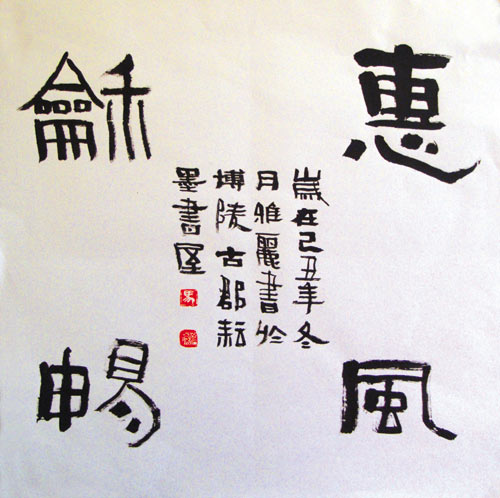 惠風
龢暢
歲在己丑年冬
月雅麗書於
博陵古郡耘
墨書屋